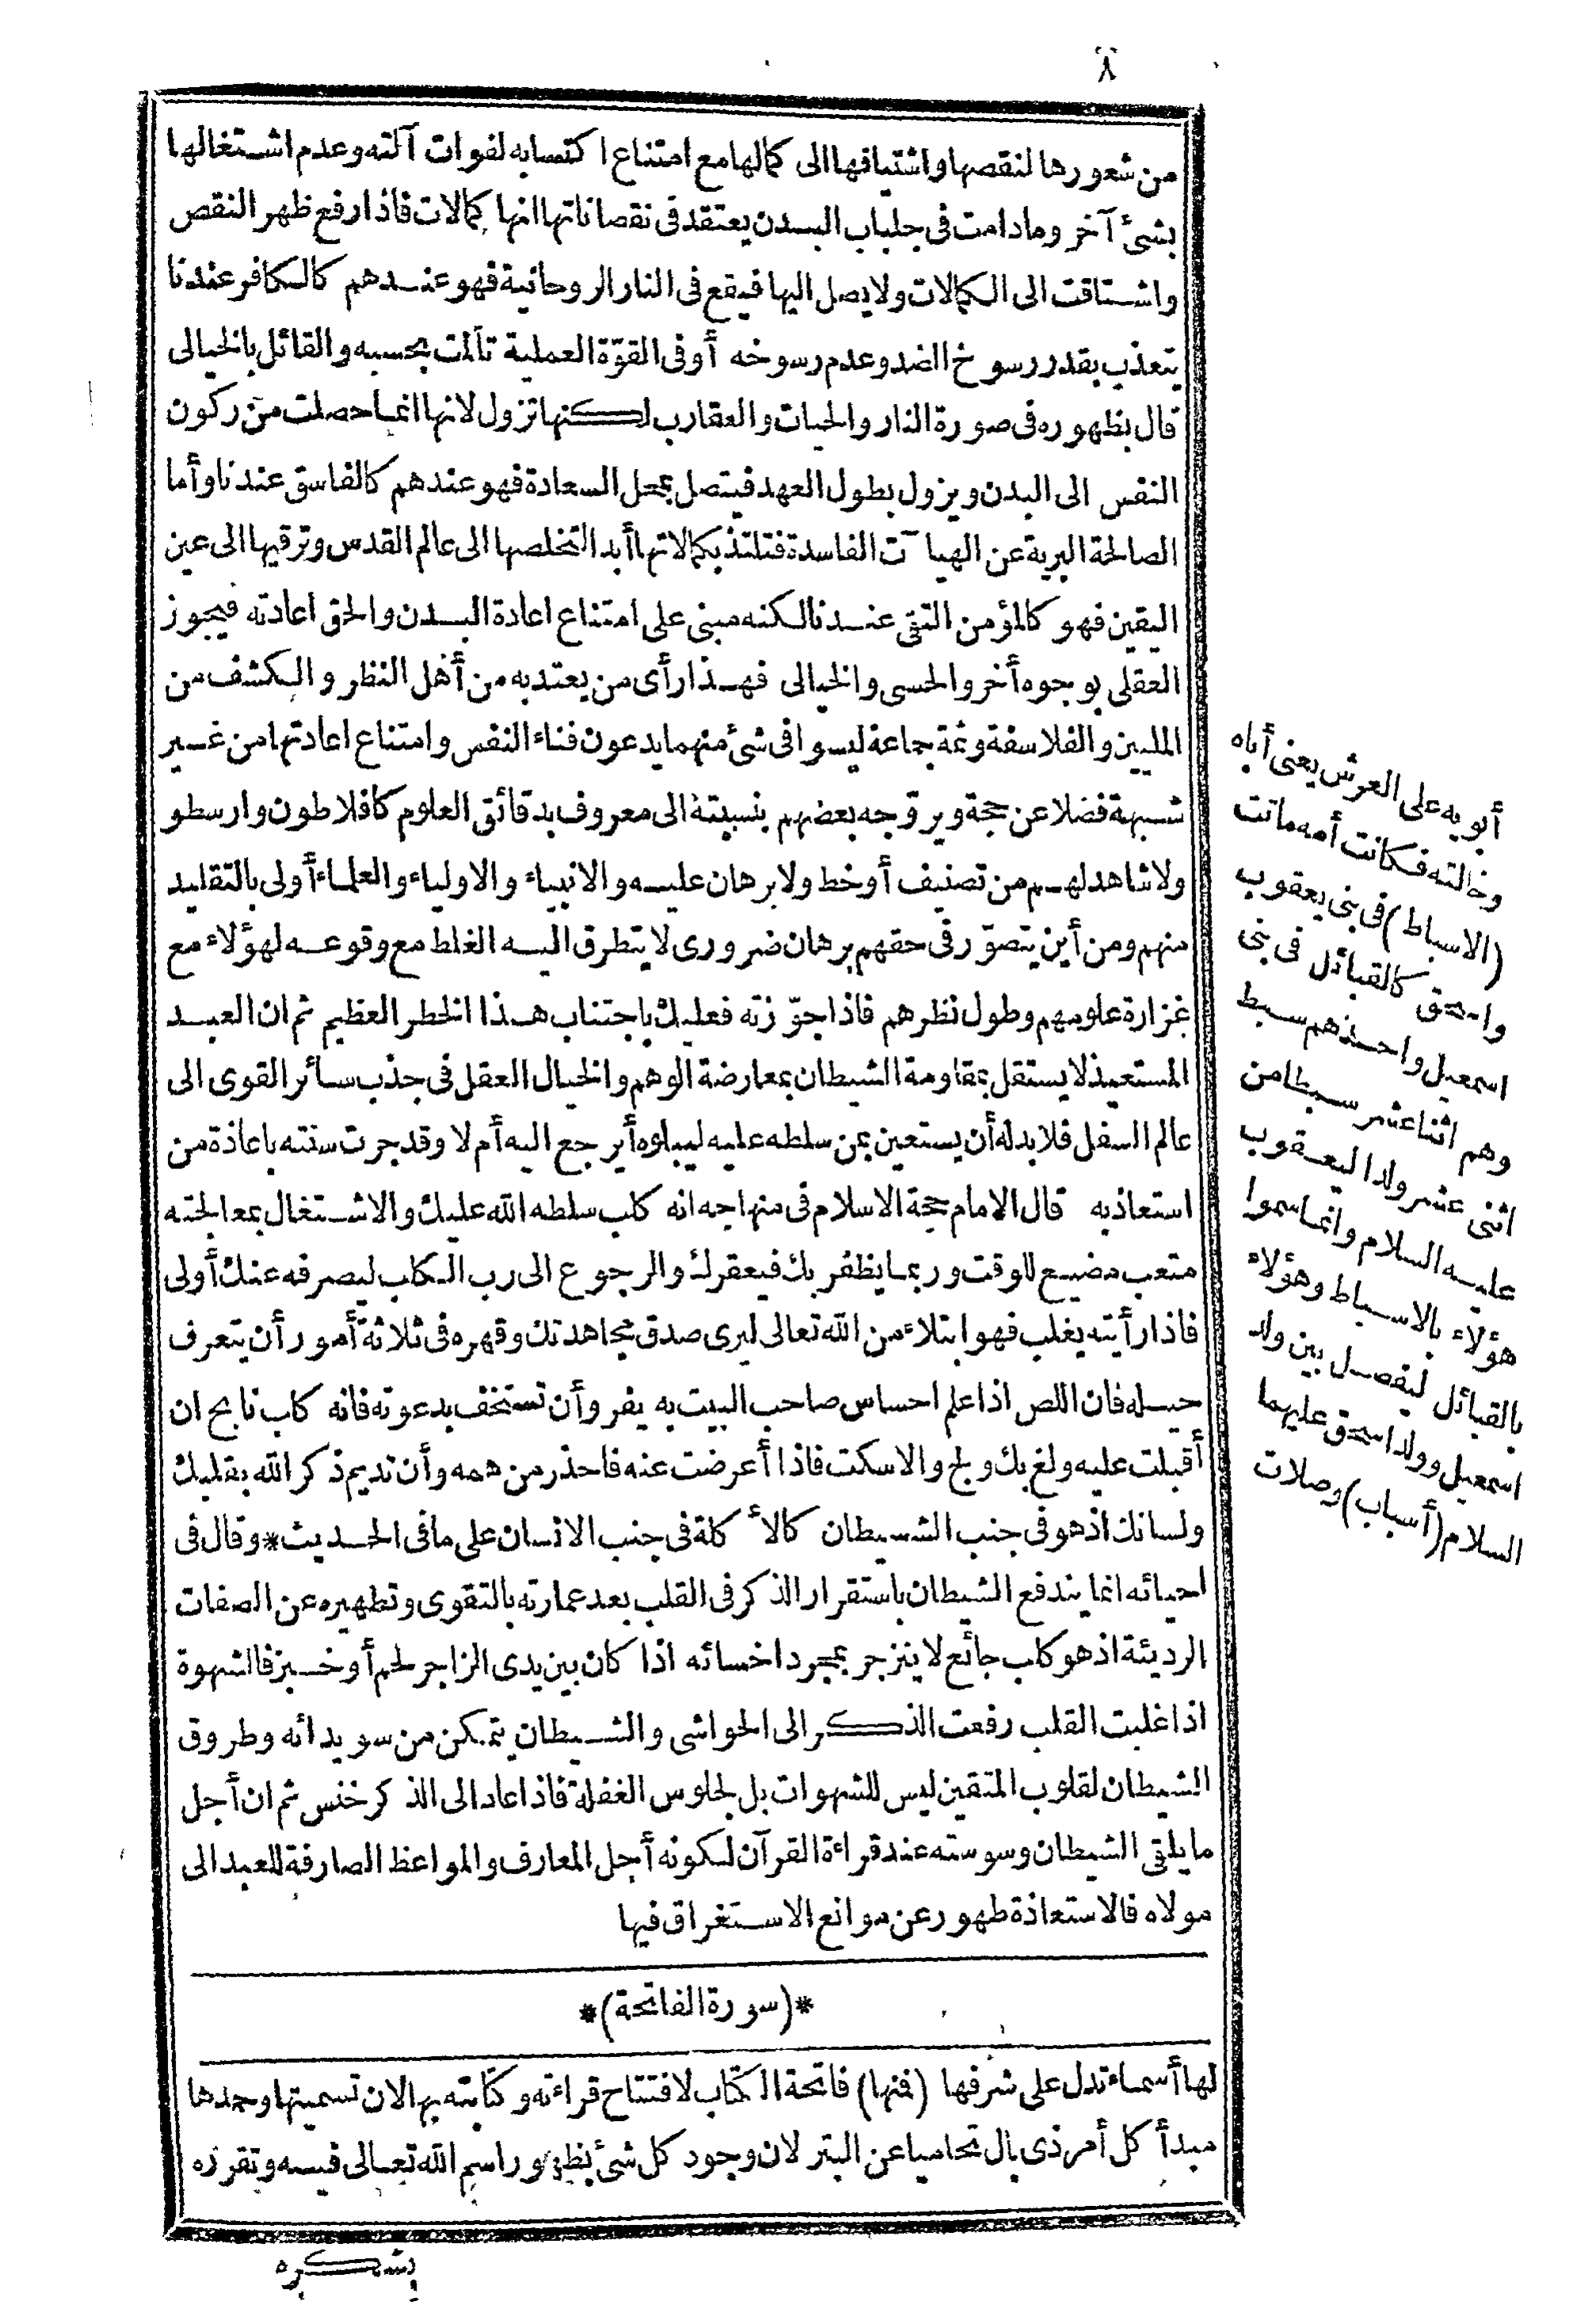 ٨
من شعورها لنقصها واشتياقها الى كمالها مع امتناع اكتسابه لفوات آلته وعدم اشتغالها
بشئ آخر وما دامت فى جلباب البدن يعتقد فى نقصاناتها انها كمالات فاذا رفع ظهر النقص
واشتاقت الى الكمالات ولا يصل اليها فيقع فى النار الروحانية فهو عندهم كالكافر عندنا
يتعذب بقدر رسوخ الضد وعدم رسوخه أو فى القوّة العملية تألمت بحسبه والقائل بالخيالى
قال بظهوره فى صورة النار والحيات والعقارب لكنها تزول لانها انما حصلت من ركون
النفس الى البدن ويزول بطول العهد فيتصل بمحل السعادة فهو عندهم كالفاسق عندنا وأما
الصالحة البرية عن الهيآت الفاسدة فتلتذ بكمالاتها أبدا لتخلصها الى عالم القدس وترقيها الى عين
اليقين فهو كالمؤمن التقى عندنا لكنه مبنى على امتناع اعادة البدن والحق اعادته فيجوز
العقلى بوجوه أخر والحسى والخيالى فهذا رأى من يعتد به من أهل النظر والكشف من
المليين والفلاسفة وثمة جماعة ليسوا فى شئ منهما يدعون فناء النفس وامتناع اعادتها من غير
شبهة فضلا عن حجة ويروّجه بعضهم بنسبته الى معروف بدقائق العلوم كافلاطون وارسطو
ولا شاهد لهم من تصنيف أو خط ولا برهان عليه والانبياء والاولياء والعلماء أولى بالتقليد
منهم ومن أين يتصوّر فى حقهم برهان ضرورى لا يتطرق اليه الغلط مع وقوعه لهؤلاء مع
غزارة علومهم وطول نظرهم فاذا جوّزته فعليك باجتناب هذا الخطر العظيم ثم ان العبد
المستعيذ لا يستقل بمقاومة الشيطان بمعارضة الوهم والخيال العقل فى جذب سائر القوى الى
عالم السفل فلا بد له أن يستعين بمن سلطه عليه ليبلوه أيرجع اليه أم لا وقد جرت سنته باعاذة من
استعاذ به قال الامام حجة الاسلام فى منهاجه انه كلب سلطه الله عليك والاشتغال بمعالجته
متعب مضيع للوقت وربما يظفر بك فيعقرك والرجوع الى رب الكلب ليصرفه عنك أولى
فاذا رأيته يغلب فهو ابتلاء من الله تعالى ليرى صدق مجاهدتك وقهره فى ثلاثة أمور أن يتعرف
حيله فان اللص اذا علم احساس صاحب البيت به يفر وأن تستخف بدعوته فانه كلب نابح ان
أقبلت عليه ولغ بك ولج والا سكت فاذا أعرضت عنه فاحذر من همه وأن تديم ذكر الله بقلبك
ولسانك اذ هو فى جنب الشيطان كالأكلة فى جنب الانسان على ما فى الحديث * وقال فى
احيائه انما يندفع الشيطان باستقرار الذكر فى القلب بعد عمارته بالتقوى وتطهيره عن الصفات
الرديئة اذ هو كلب جائع لا ينزجر بمجرد اخسائه اذا كان بين يدى الزاجر لحم أو خبز فالشهوة
اذا غلبت القلب رفعت الذكر الى الحواشى والشيطان يتمكن من سويدائه وطروق
الشيطان لقلوب المتقين ليس للشهوات بل لجلوس الغفلة فاذا عاد الى الذكر خنس ثم ان أجل
ما يلقى الشيطان وسوسته عند قراءة القرآن لكونه أجل المعارف والمواعظ الصارفة للعبد الى
مولاه فالاستعاذة طهور عن موانع الاستغراق فيها
*(سورة الفاتحة)*
لها أسماء تدل على شرفها (فمنها) فاتحة الكتاب لافتتاح قراءته وكتابته بها لان تسميتها وحمدها
مبدأ كل أمر ذى بال تحاميا عن البتر لان وجود كل شئ بظهور اسم الله تعالى فيه وتقرره
بشكره
أبويه على العرش يعنى أباه
وخالته فكانت أمه ماتت
(الاسباط) فى بنى يعقوب
واسحق كالقبائل فى بنى
اسمعيل واحدهم سبط
وهم اثنا عشر سبطا من
اثنى عشر ولدا ليعقوب
عليه السلام وانما سموا
هؤلاء بالاسباط وهؤلاء
بالقبائل ليفصل بين ولد
اسمعيل وولد اسحق عليهما
السلام (أسباب) وصلات